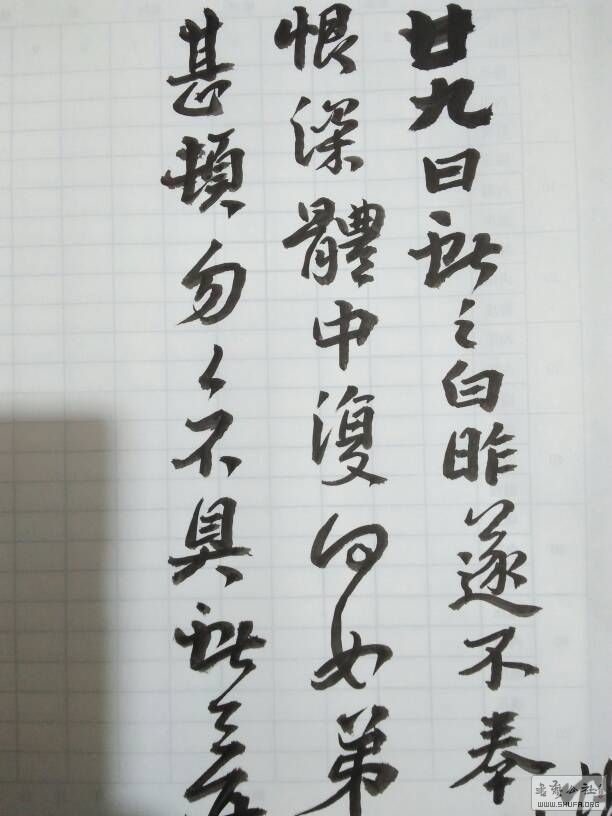 廿九日獻之白昨遂不奉
恨深體中復何如弟
甚頓勿々不具獻之再
書法公社
WWW.SHUFA.ORG